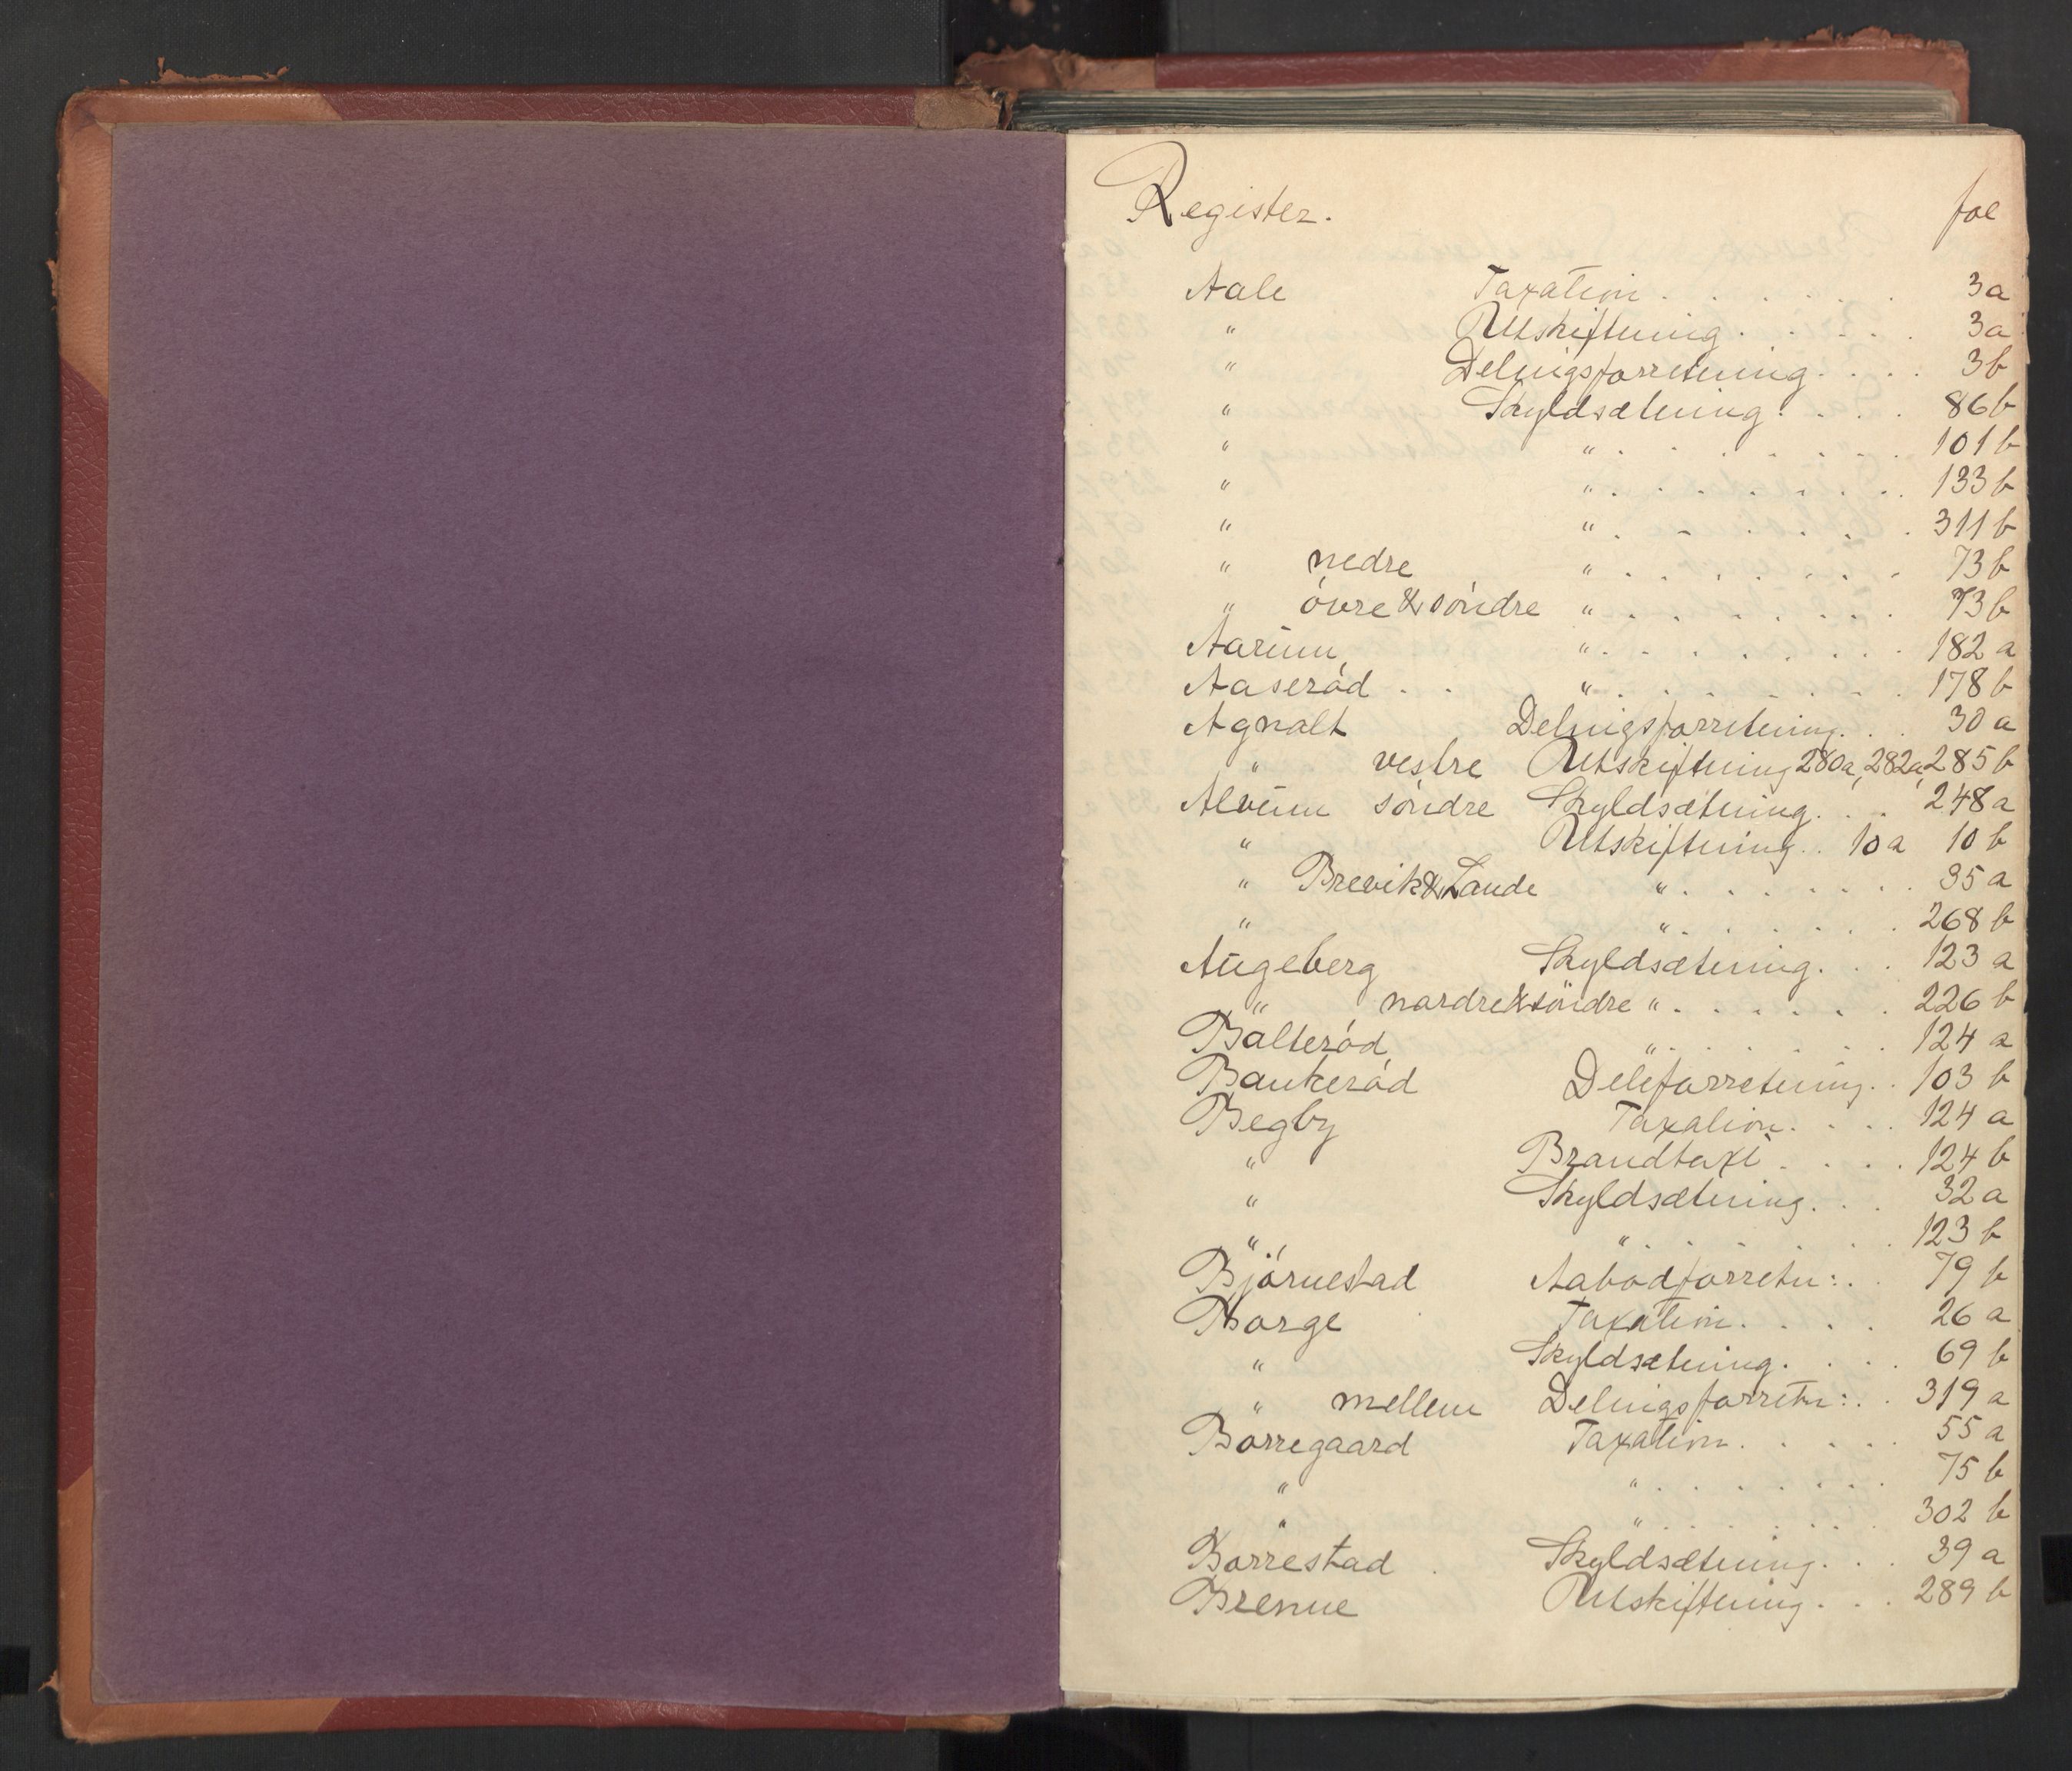 Register. fol
Aale Taxation . . . . . . 3a
" Utskiftning . . . . . 3a
" Delnigsforretning . . . . 3b
" Skyldsætning . . . . 86b
" " . . . . . . . 101b
" " . . . . . . . . 133b
" " . . . . . . . 311b
" nedre " . . . . . . . 73b
" övre & söndre " . . . . . . . 73b
Aarum, " . . . . . . . 182 a
Aaseröd . . " . . . . . . . 178b
Agnalt Delnigsforretning . . 30 a
" vestre Utskiftning 280a, 282a, 285b
Alvum söndre Skyldsætning . . . 248a
" Utskiftning . . 10a 10b
" Brevik & Lande " . . . . . . . 35a
" " . . . . . . 268b
Augeberg Skyldsætning . . . 123 a
" nordre & söndre " . . . . . . 226 b
Balteröd, " . . . . . . . 124 a
Bankeröd Deleforretning . . 103 b
Begby Taxation . . . . 124 a
" Brandtaxt . . . . 124 b
" Skyldsætning . . . 32a
" " . . . . . . . 123 b
Björnestad Aabodforretn: . . 79 b
Borge Taxation . . . . 26 a
" Skyldsætning . . . . 69 b
" mellem Delnigsforretn: . . 319 a
Borregaard Taxation . . . . . 55 a
" " . . . . . . . 75 b
" " . . . . . . . 302 b
Borrestad . Skyldsætning . . . 39 a
Brenne Utskiftning . . . 289 b